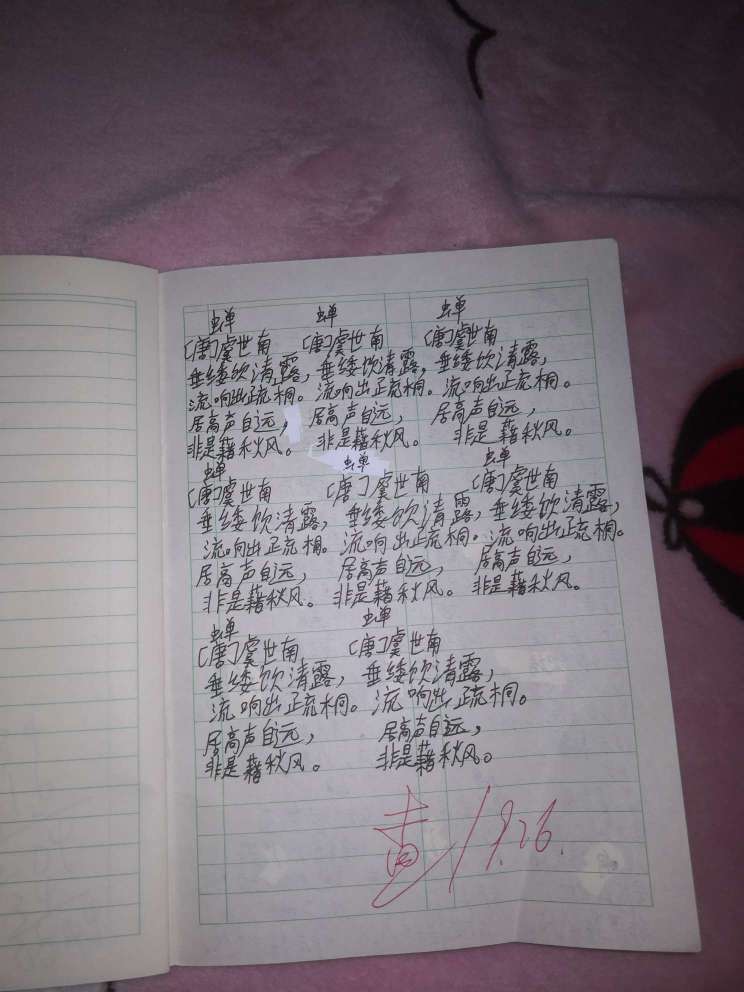 蝉 蝉 蝉
〔唐〕虞世南 〔唐〕虞世南 〔唐〕虞世南
垂緌饮清露，垂緌饮清露，垂緌饮清露，
流响出疏桐。流响出疏桐。流响出疏桐。
居高声自远，居高声自远，居高声自远，
非是藉秋风。非是藉秋风。非是藉秋风。
蝉 蝉 蝉
〔唐〕虞世南 〔唐〕虞世南 〔唐〕虞世南
垂緌饮清露，垂緌饮清露，垂緌饮清露，
流响出疏桐。流响出疏桐。流响出疏桐。
居高声自远，居高声自远，居高声自远，
非是藉秋风。非是藉秋风。非是藉秋风。
蝉 蝉
〔唐〕虞世南 〔唐〕虞世南
垂緌饮清露，垂緌饮清露，
流响出疏桐。流响出疏桐。
居高声自远，居高声自远，
非是藉秋风。非是藉秋风。
9.26.